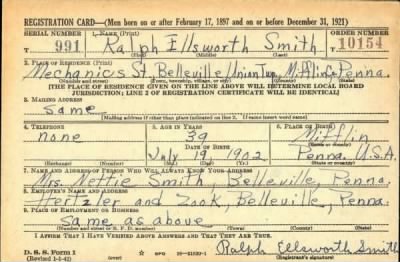 REGISTRATION CARD—(Men born on or after February 17, 1897 and on or before December 31, 1921)
SERIAL NUMBER 1. NAME (Print) ORDER NUMBER
T 991 Ralph Ellsworth Smith T 10154
(First) (Middle) (Last)
2. PLACE OF RESIDENCE (Print)
Mechanics St. Belleville Union Twp. Mifflin Penna.
(Number and street) (Town, township, village, or city) (County) (State)
[THE PLACE OF RESIDENCE GIVEN ON THE LINE ABOVE WILL DETERMINE LOCAL BOARD
JURISDICTION; LINE 2 OF REGISTRATION CERTIFICATE WILL BE IDENTICAL]
3. MAILING ADDRESS
Same
[Mailing address if other than place indicated on line 2. If same insert word same]
4. TELEPHONE 5. AGE IN YEARS 6. PLACE OF BIRTH
none 39 Mifflin
DATE OF BIRTH (Town or county)
July 19 1902 Penna. U.S.A.
(Exchange) (Number) (Mo.) (Day) (Yr.) (State or country)
7. NAME AND ADDRESS OF PERSON WHO WILL ALWAYS KNOW YOUR ADDRESS
Mrs. Nettie Smith, Belleville, Penna.
8. EMPLOYER'S NAME AND ADDRESS
Hertzler and Zook, Belleville, Penna.
9. PLACE OF EMPLOYMENT OR BUSINESS
Same as above
(Number and street or R. F. D. number) (Town) (County) (State)
I AFFIRM THAT I HAVE VERIFIED ABOVE ANSWERS AND THAT THEY ARE TRUE.
D. S. S. Form 1 Ralph Ellsworth Smith
(Revised 1-1-42) GPO (Registrant's signature)